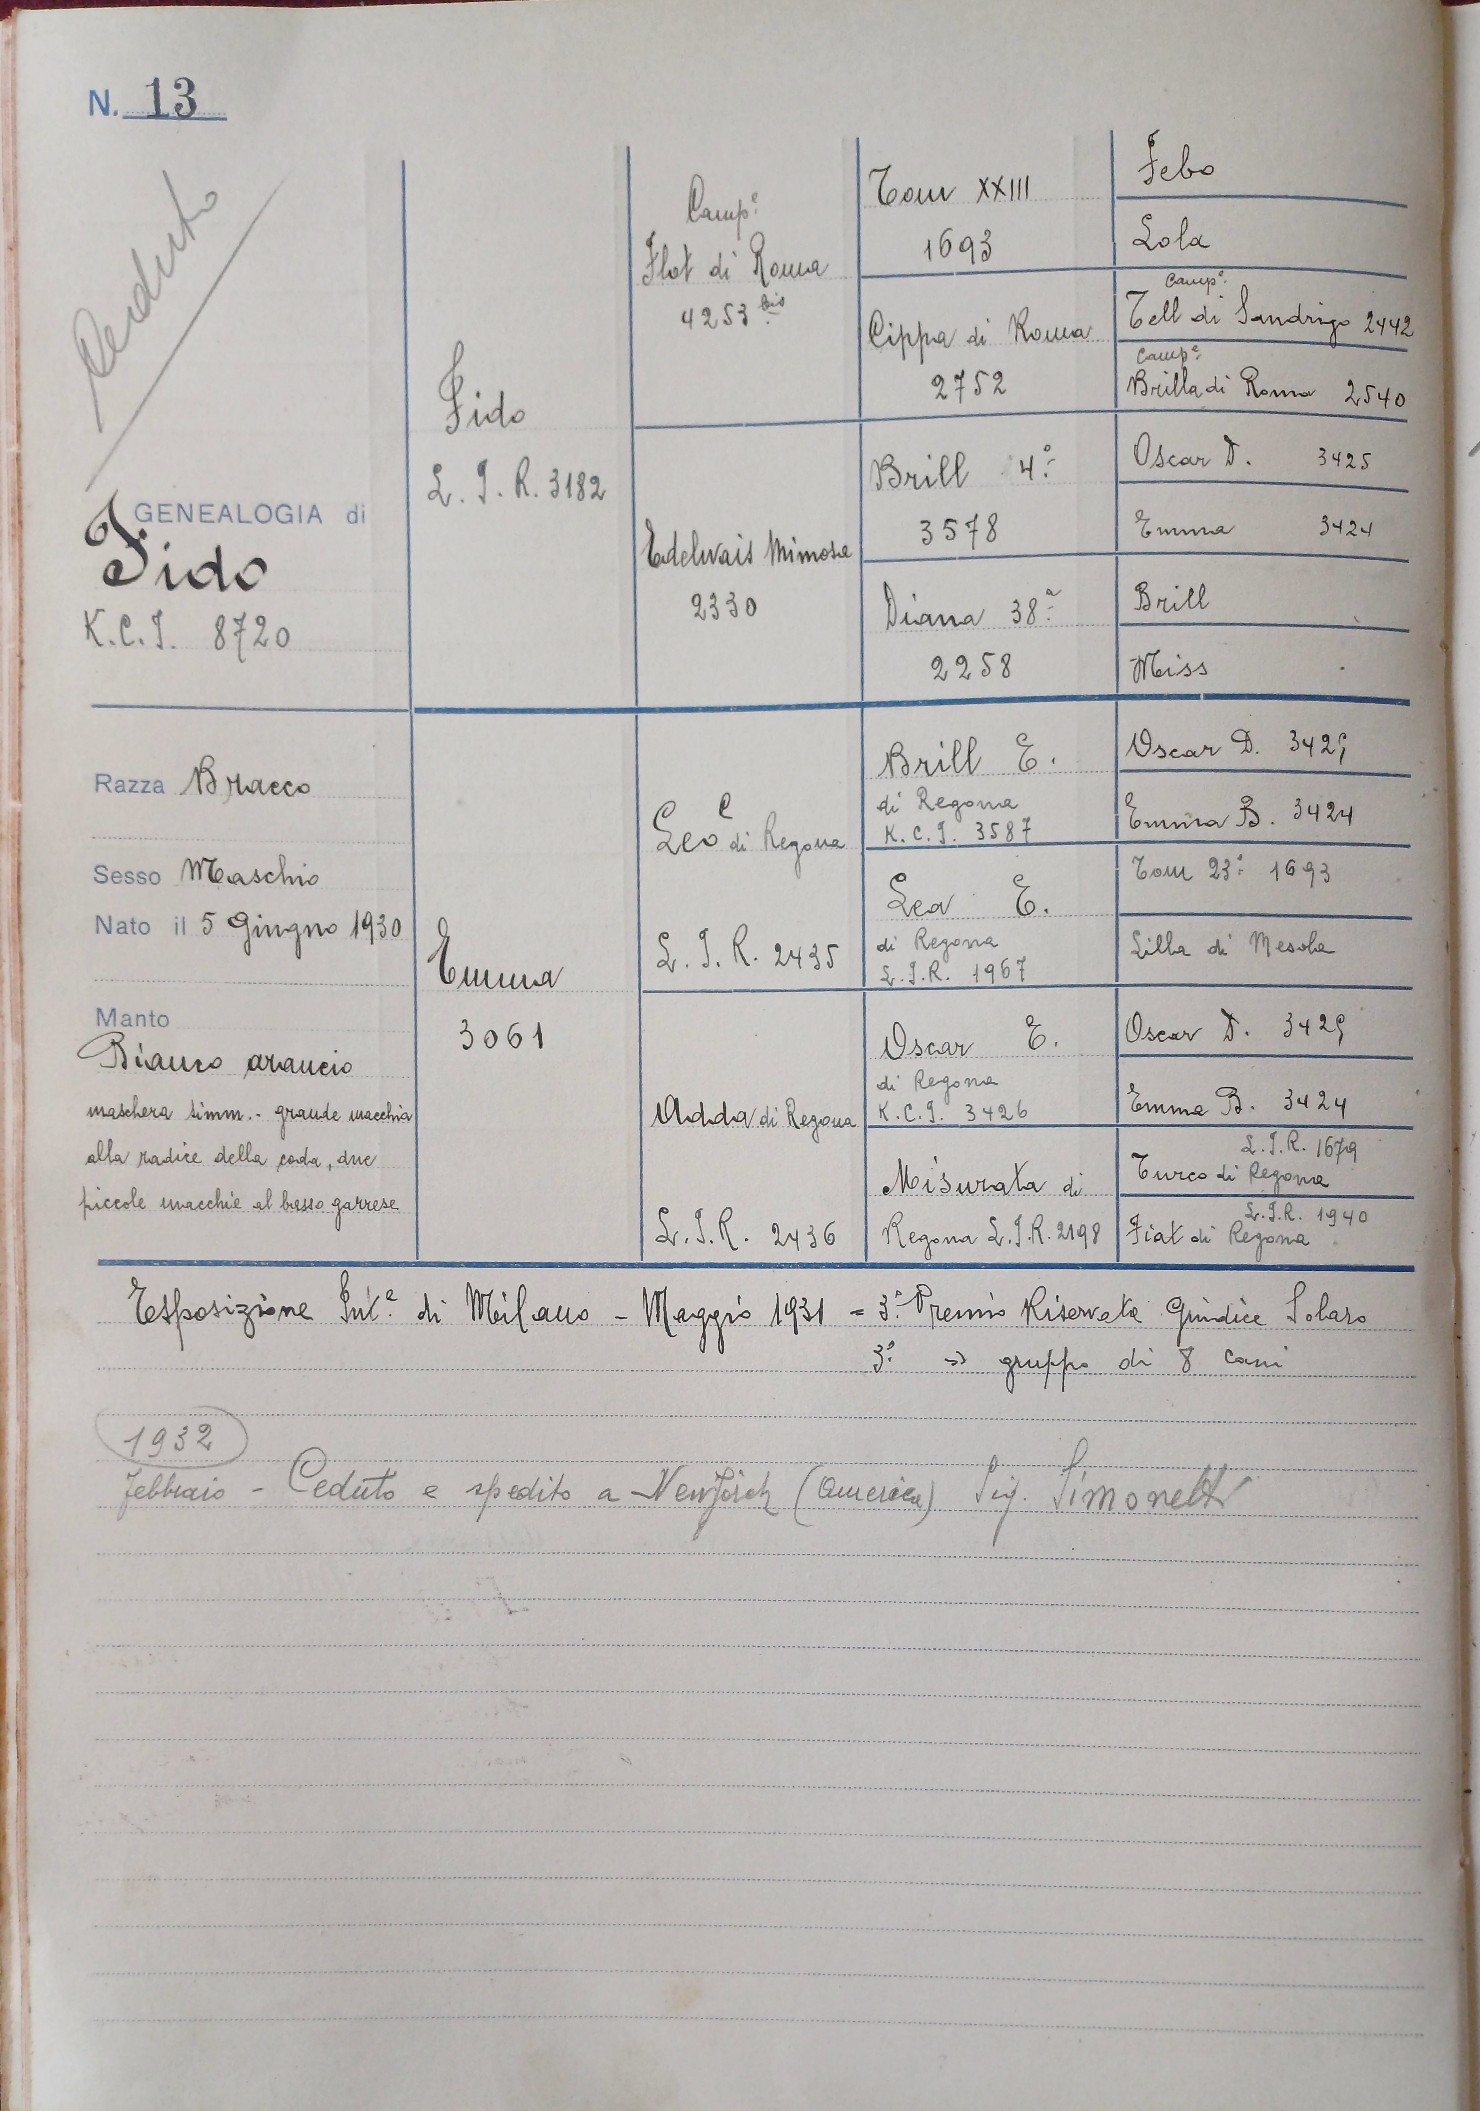 N. 13
Ceduto
GENEALOGIA di
Fido
K.C.I. 8720
Razza Bracco
Sesso Maschio
Nato il 5 Giugno 1930
Manto
Bianco arancio
maschera simm. - grande macchia
alla radice della coda, due
piccole macchie al basso garrese
Fido
L.I.R. 3182
Emma
3061
Camp.e
Flot di Roma
4253 bis
Edelvais Mimosa
2330
Leo E di Regona
L.I.R. 2435
Adda di Regona
L.I.R. 2436
Tom XXIII
1693
Cippa di Roma
2752
Brill 4°
3578
Diana 38a
2258
Brill E.
di Regona
K.C.I. 3587
Lea E.
di Regona
L.I.R. 1967
Oscar E.
di Regona
K.C.I. 3426
Misurata di
Regona L.I.R. 2198
Febo
Lola
Camp.e
Tell di Sandrigo 2442
Camp.e
Brilla di Roma 2540
Oscar D. 3425
Emma 3424
Brill
Miss
Oscar D. 3425
Emma B. 3424
Tom 23° 1693
Lilla di Mesola
Oscar D. 3425
Emma B. 3424
L.I.R. 1679
Turco di Regona
L.I.R. 1940
Fiat di Regona
Esposizione Int.e di Milano - Maggio 1931 = 3° Premio Riservata Giudice Solaro
3° » gruppo di 8 cani
1932
Febbraio - Ceduto e spedito a NewJorch (America) Sig. Simonetti